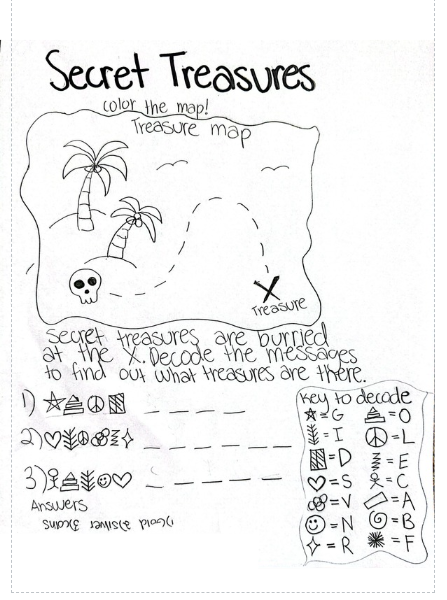 Secret Treasures
color the map!
Treasure map
Treasure
secret treasures are burried
at the X. Decode the messages
to find out what treasures are there.
1) _ _ _ _
2) _ _ _ _ _ _
3) _ _ _ _ _
Answers
1)Gold 2)silver 3)coins
key to decode
=G =O
=I =L
=D =E
=S =C
=V =A
=N =B
=R =F